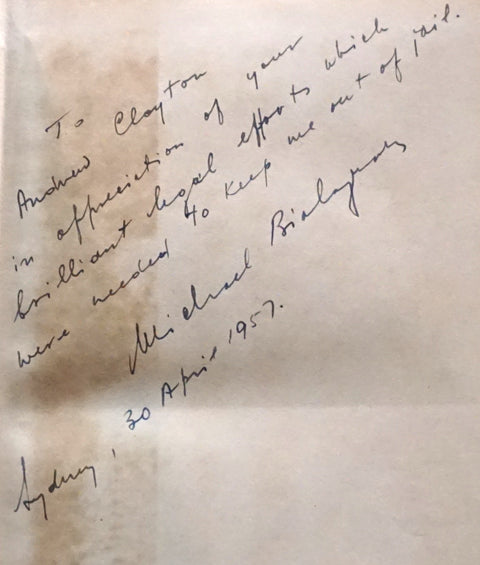 To
Andrew Clayton
in appreciation of your
brilliant legal efforts which
were needed to keep me out of jail.
Michael Bialoguski
Sydney,
30 April 1957.